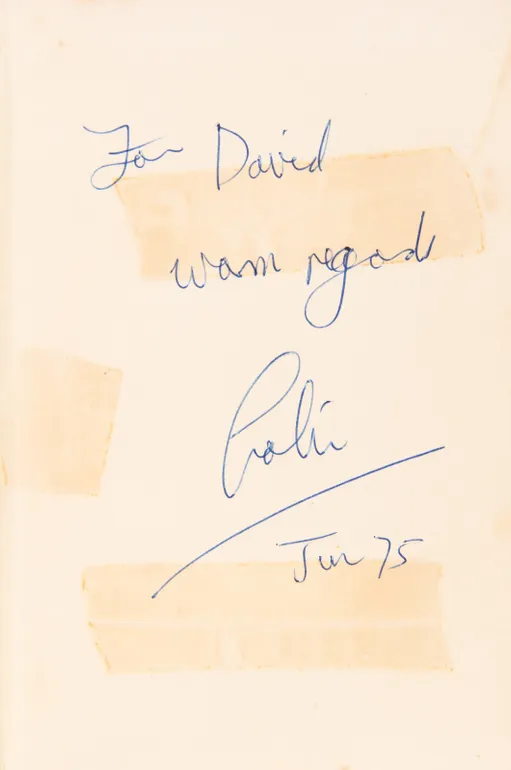 For David
warm regards
Colin
Jun 75